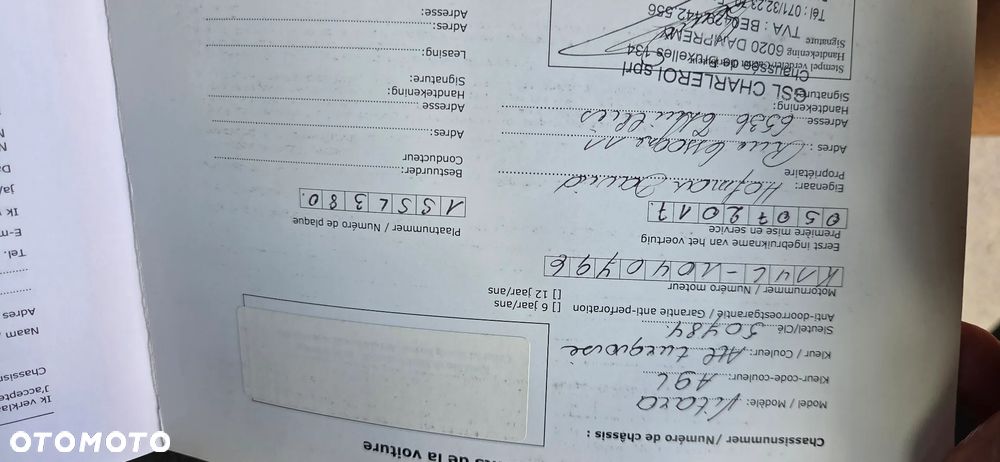 de la voiture
Chassisnummer / Numéro de châssis :
Model / Modèle: Vitara
Kleur-code-couleur: A9L
Kleur / Couleur: Atl turquoise
Sleutel/Clé 30484
Anti-doorroestgarantie / Garantie anti-perforation [] 6 jaar/ans
[] 12 jaar/ans
Motornummer / Numéro moteur
K14C-1040796
Eerst ingebruikname van het voertuig
Première mise en service
05072017.
Plaatnummer / Numéro de plaque
1SSL380.
Eigenaar: David
Propriétaire
Adres: Rue 11
Adresse 6536 Thuillies
Handtekening:
Signature:
Bestuurder:
Conducteur
Adres:
Adresse
Handtekening:
Signature:
Leasing:
Adres:
Adresse:
GSL CHARLEROI sprl
Chaussée de Bruxelles 134
6020 DAMPREMY
TVA : BE0429.442.556
Tél : 071/32.23
Stempel verdeler
Handtekening
Signature
Ik verkla
J'accepte
Chassis
Naam
Adres
Tel.
E-m
Ik
ja/
OTOMOTO